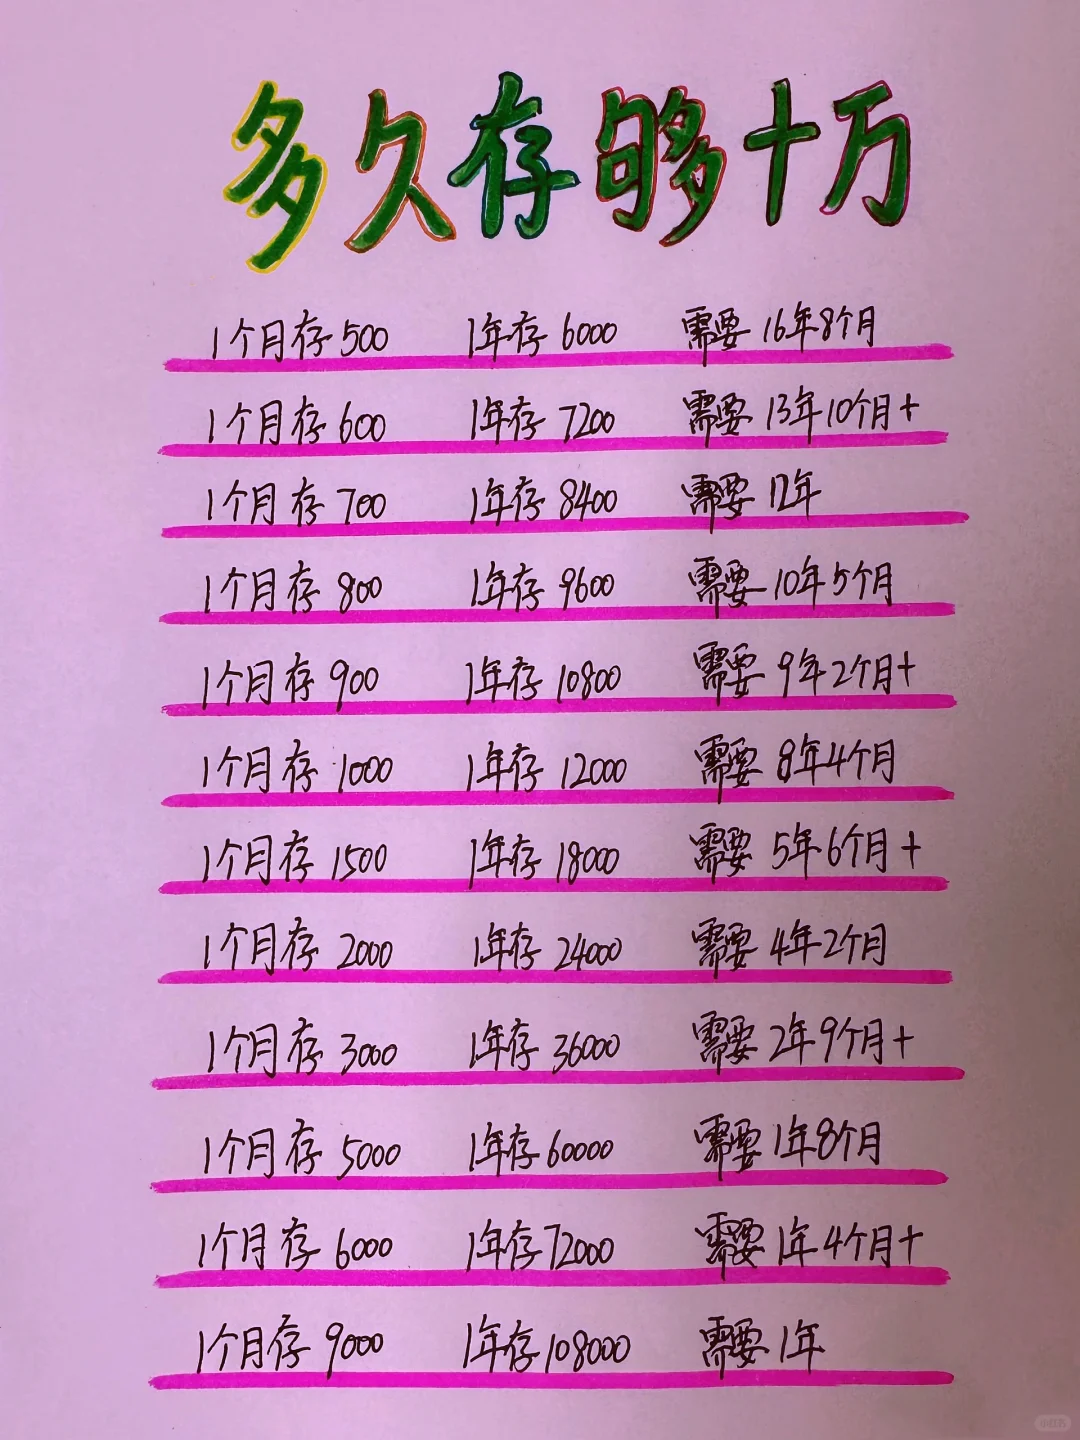 多久存够十万
1个月存500 1年存6000 需要16年8个月
1个月存600 1年存7200 需要13年10个月+
1个月存700 1年存8400 需要12年
1个月存800 1年存9600 需要10年5个月
1个月存900 1年存10800 需要9年2个月+
1个月存1000 1年存12000 需要8年4个月
1个月存1500 1年存18000 需要5年6个月+
1个月存2000 1年存24000 需要4年2个月
1个月存3000 1年存36000 需要2年9个月+
1个月存5000 1年存60000 需要1年8个月
1个月存6000 1年存72000 需要1年4个月+
1个月存9000 1年存108000 需要1年
小红书